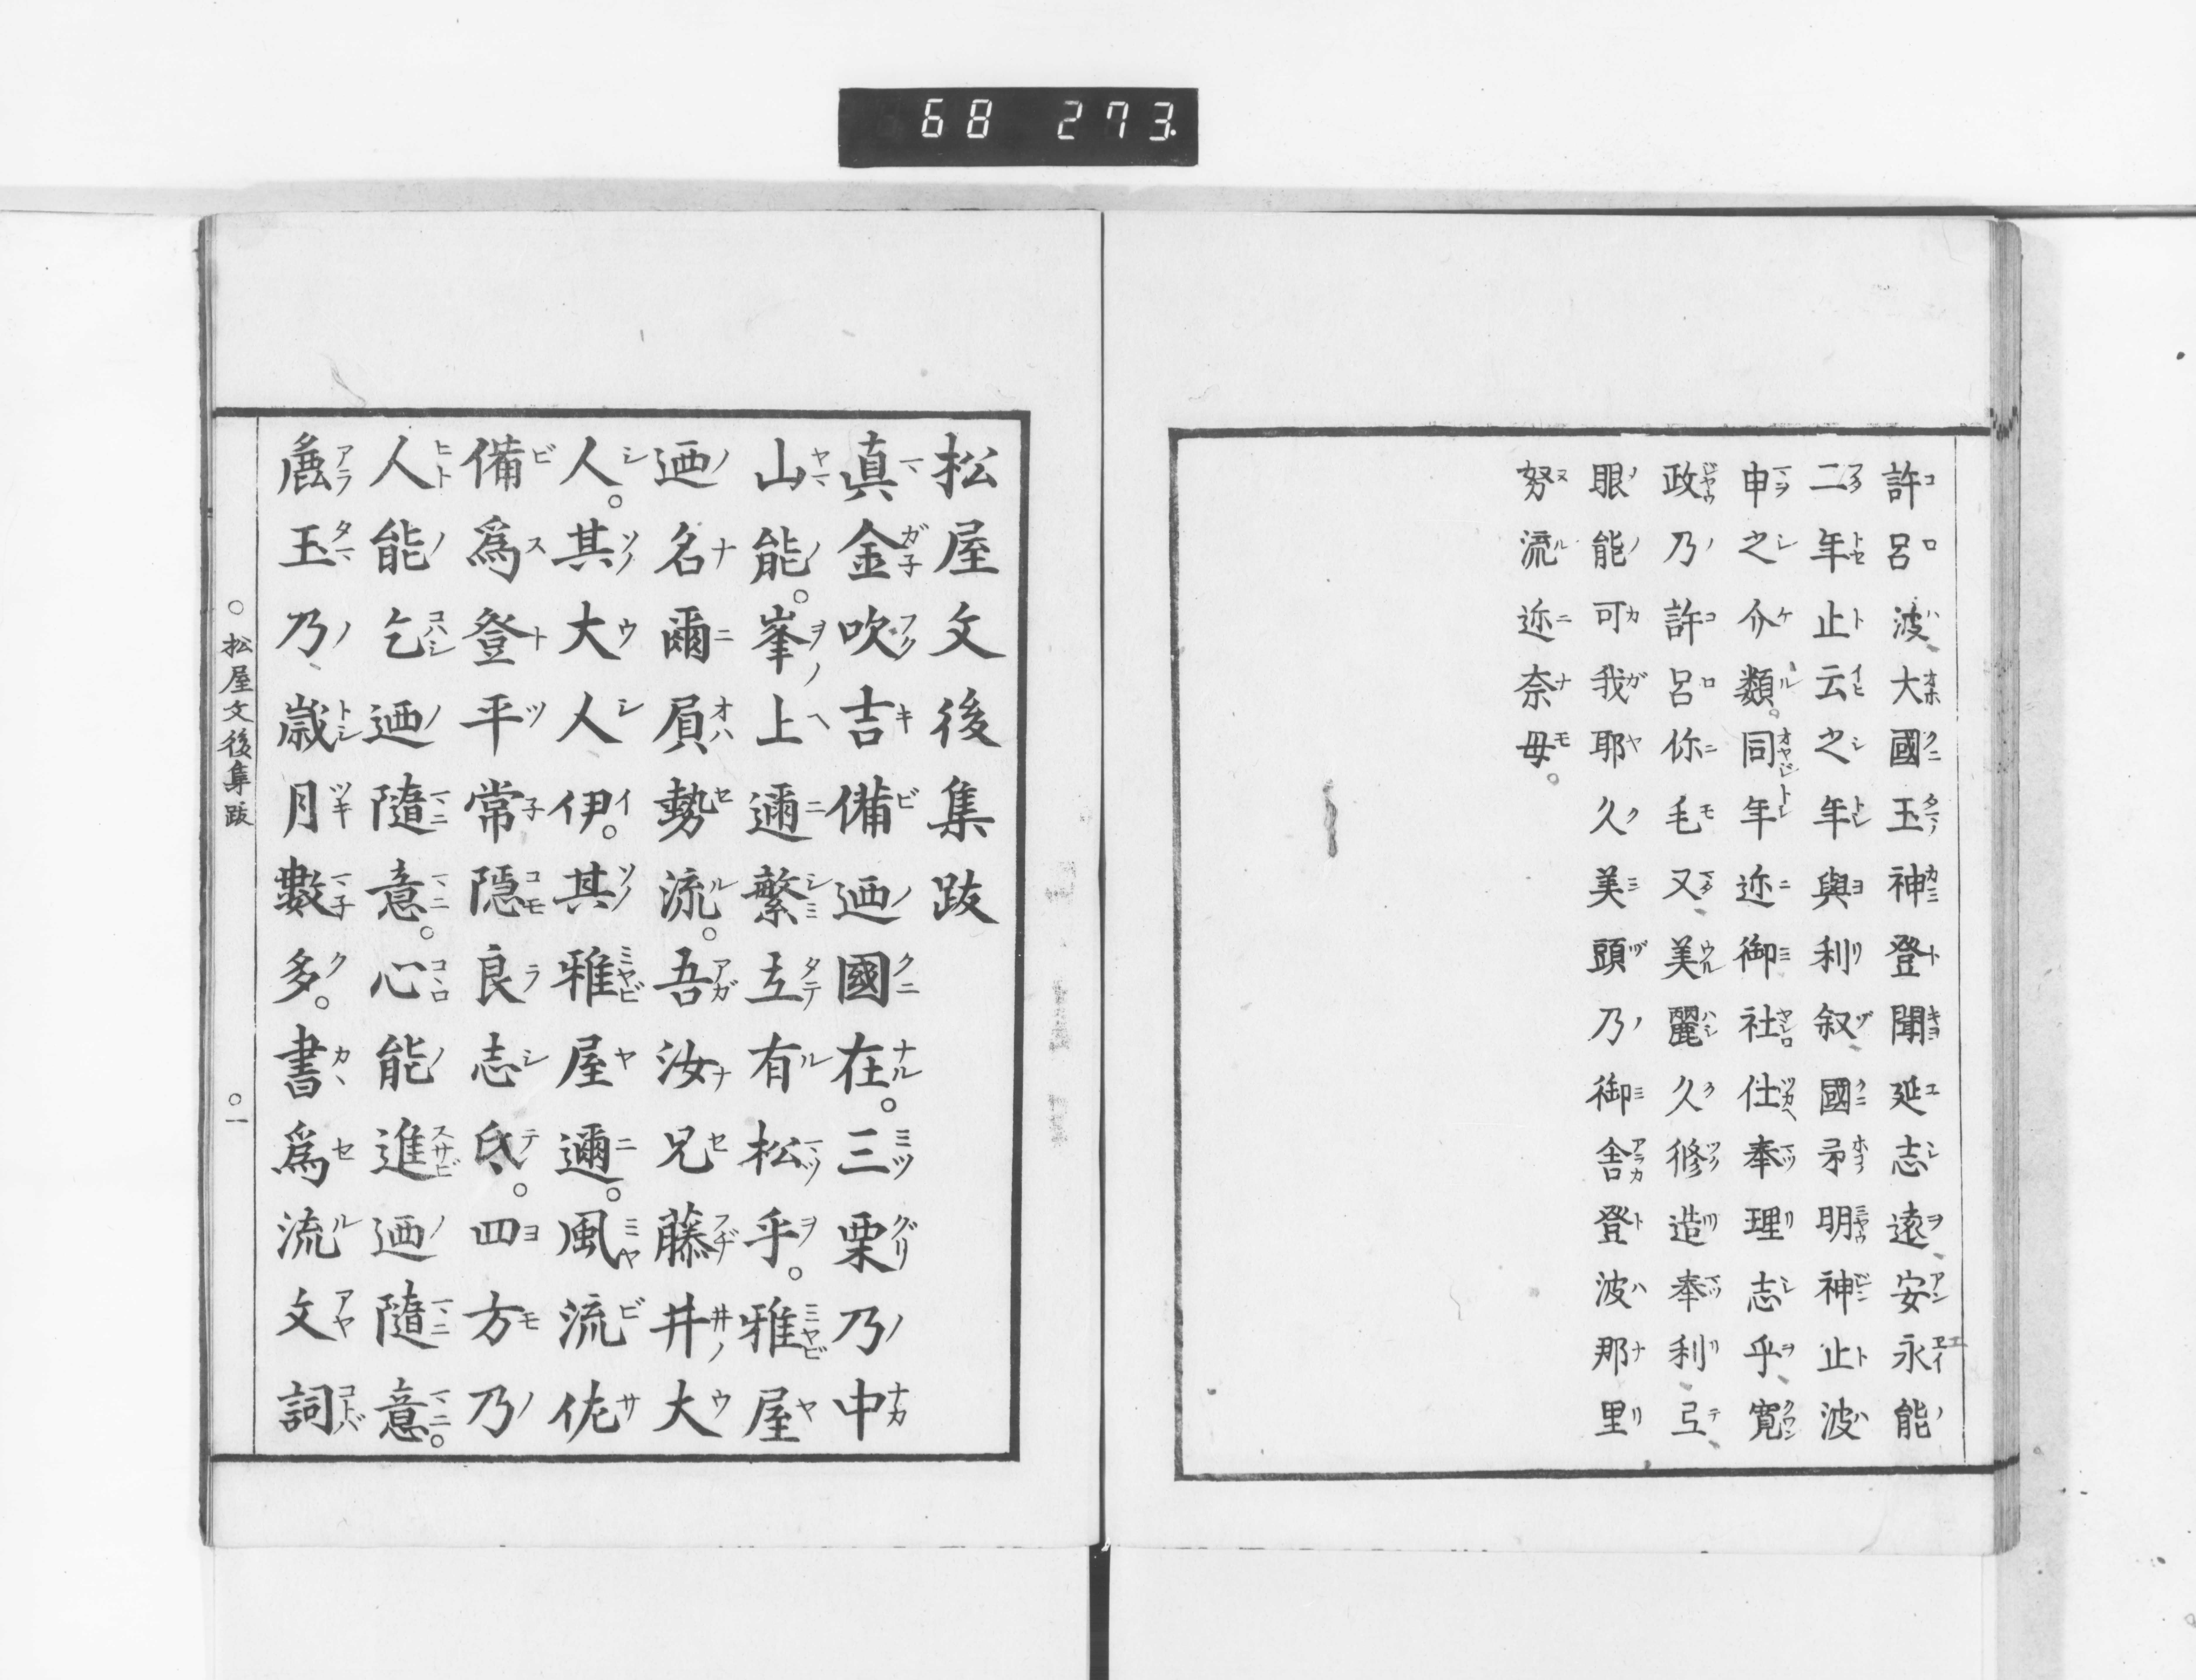 68 273.
許呂波、大國玉神登聞延志遠、安永能
二年止云之年與利叙、國矛明神止波
申之介類。同年迩御社仕奉理志乎、寛
政乃許呂你毛又、美麗久修造奉利、弖、
眼能可我耶久美頭乃御舎登波那里
努流迩奈母。
松屋文後集跋
真金吹吉備迺國在。三栗乃中
山能。峯上邇繁立有松乎。雅屋
迺名爾屓勢流。吾汝兄藤井大
人。其大人伊。其雅屋邇。風流佐
備爲登平常隠良志氐。四方乃
人能乞迺隨意。心能進迺隨意。
麁玉乃、歳月數多。書爲流文詞
○松屋文後集跋 ○一